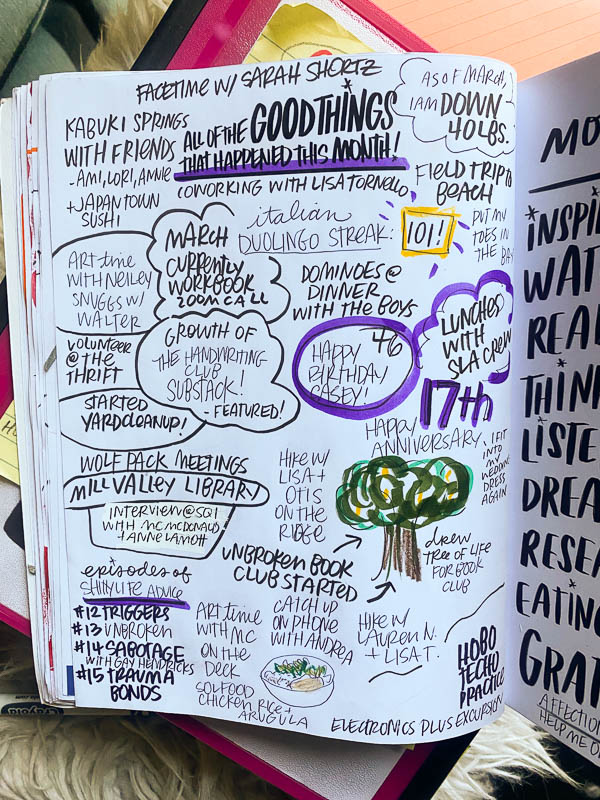 FACETIME W/ SARAH SHORTZ
KABUKI SPRINGS
WITH FRIENDS
-AMI, LORI, ANNIE
+ JAPANTOWN
SUSHI
ALL OF THE GOOD THINGS
THAT HAPPENED THIS MONTH!
AS OF MARCH,
I AM DOWN
40 LBS.
COWORKING WITH LISA TORNELLO
FIELD TRIP TO
BEACH
PUT MY
TOES IN
THE BAY
italian
DUOLINGO STREAK:
101!
ART time
WITH NEILEY
SNUGGS W/
WALTER
MARCH
CURRENTLY
WORKBOOK
ZOOM CALL
DOMINOES @
DINNER
WITH THE BOYS
VOLUNTEER
@ THE
THRIFT
GROWTH OF
THE HANDWRITING
CLUB
SUBSTACK!
-FEATURED!
HAPPY 46
BIRTHDAY
CASEY!
LUNCHES
WITH
SLA CREW
STARTED
YARD CLEANUP!
17th
HAPPY
ANNIVERSARY
I FIT
INTO
MY
WEDDING
DRESS
AGAIN
WOLF PACK MEETINGS
MILL VALLEY LIBRARY
INTERVIEW @ SQ1
WITH MC MCDONALD
+ ANNE LAMOTT
HIKE W/
LISA +
OTIS
ON THE
RIDGE
UNBROKEN BOOK
CLUB STARTED
DREW
TREE OF LIFE
FOR BOOK
CLUB
episodes of
SHINY LITE ADVICE
#12 TRIGGERS
#13 UNBROKEN
#14 SABOTAGE
WITH GAY HENDRICKS
#15 TRAUMA
BONDS
ART time
WITH MC
ON THE
DECK
SOL FOOD
CHICKEN RICE +
ARUGULA
CATCH UP
ON PHONE
WITH ANDREA
HIKE W/
LAUREN N.
+ LISA T.
HOBO
TECHO
PRACTICE
ELECTRONICS PLUS EXCURSION
MO
INSPI
WAT
REA
THIN
LISTE
DREA
RESEA
EATING
GRAT
AFFECTION
HELP ME O
Crayola